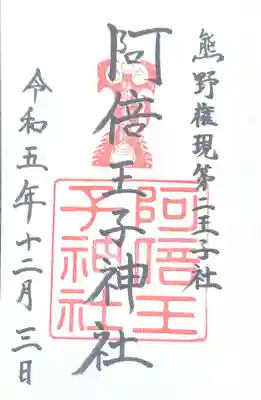 熊野権現第二王子社
阿倍王子神社
阿倍王
子神社
令和五年十二月三日